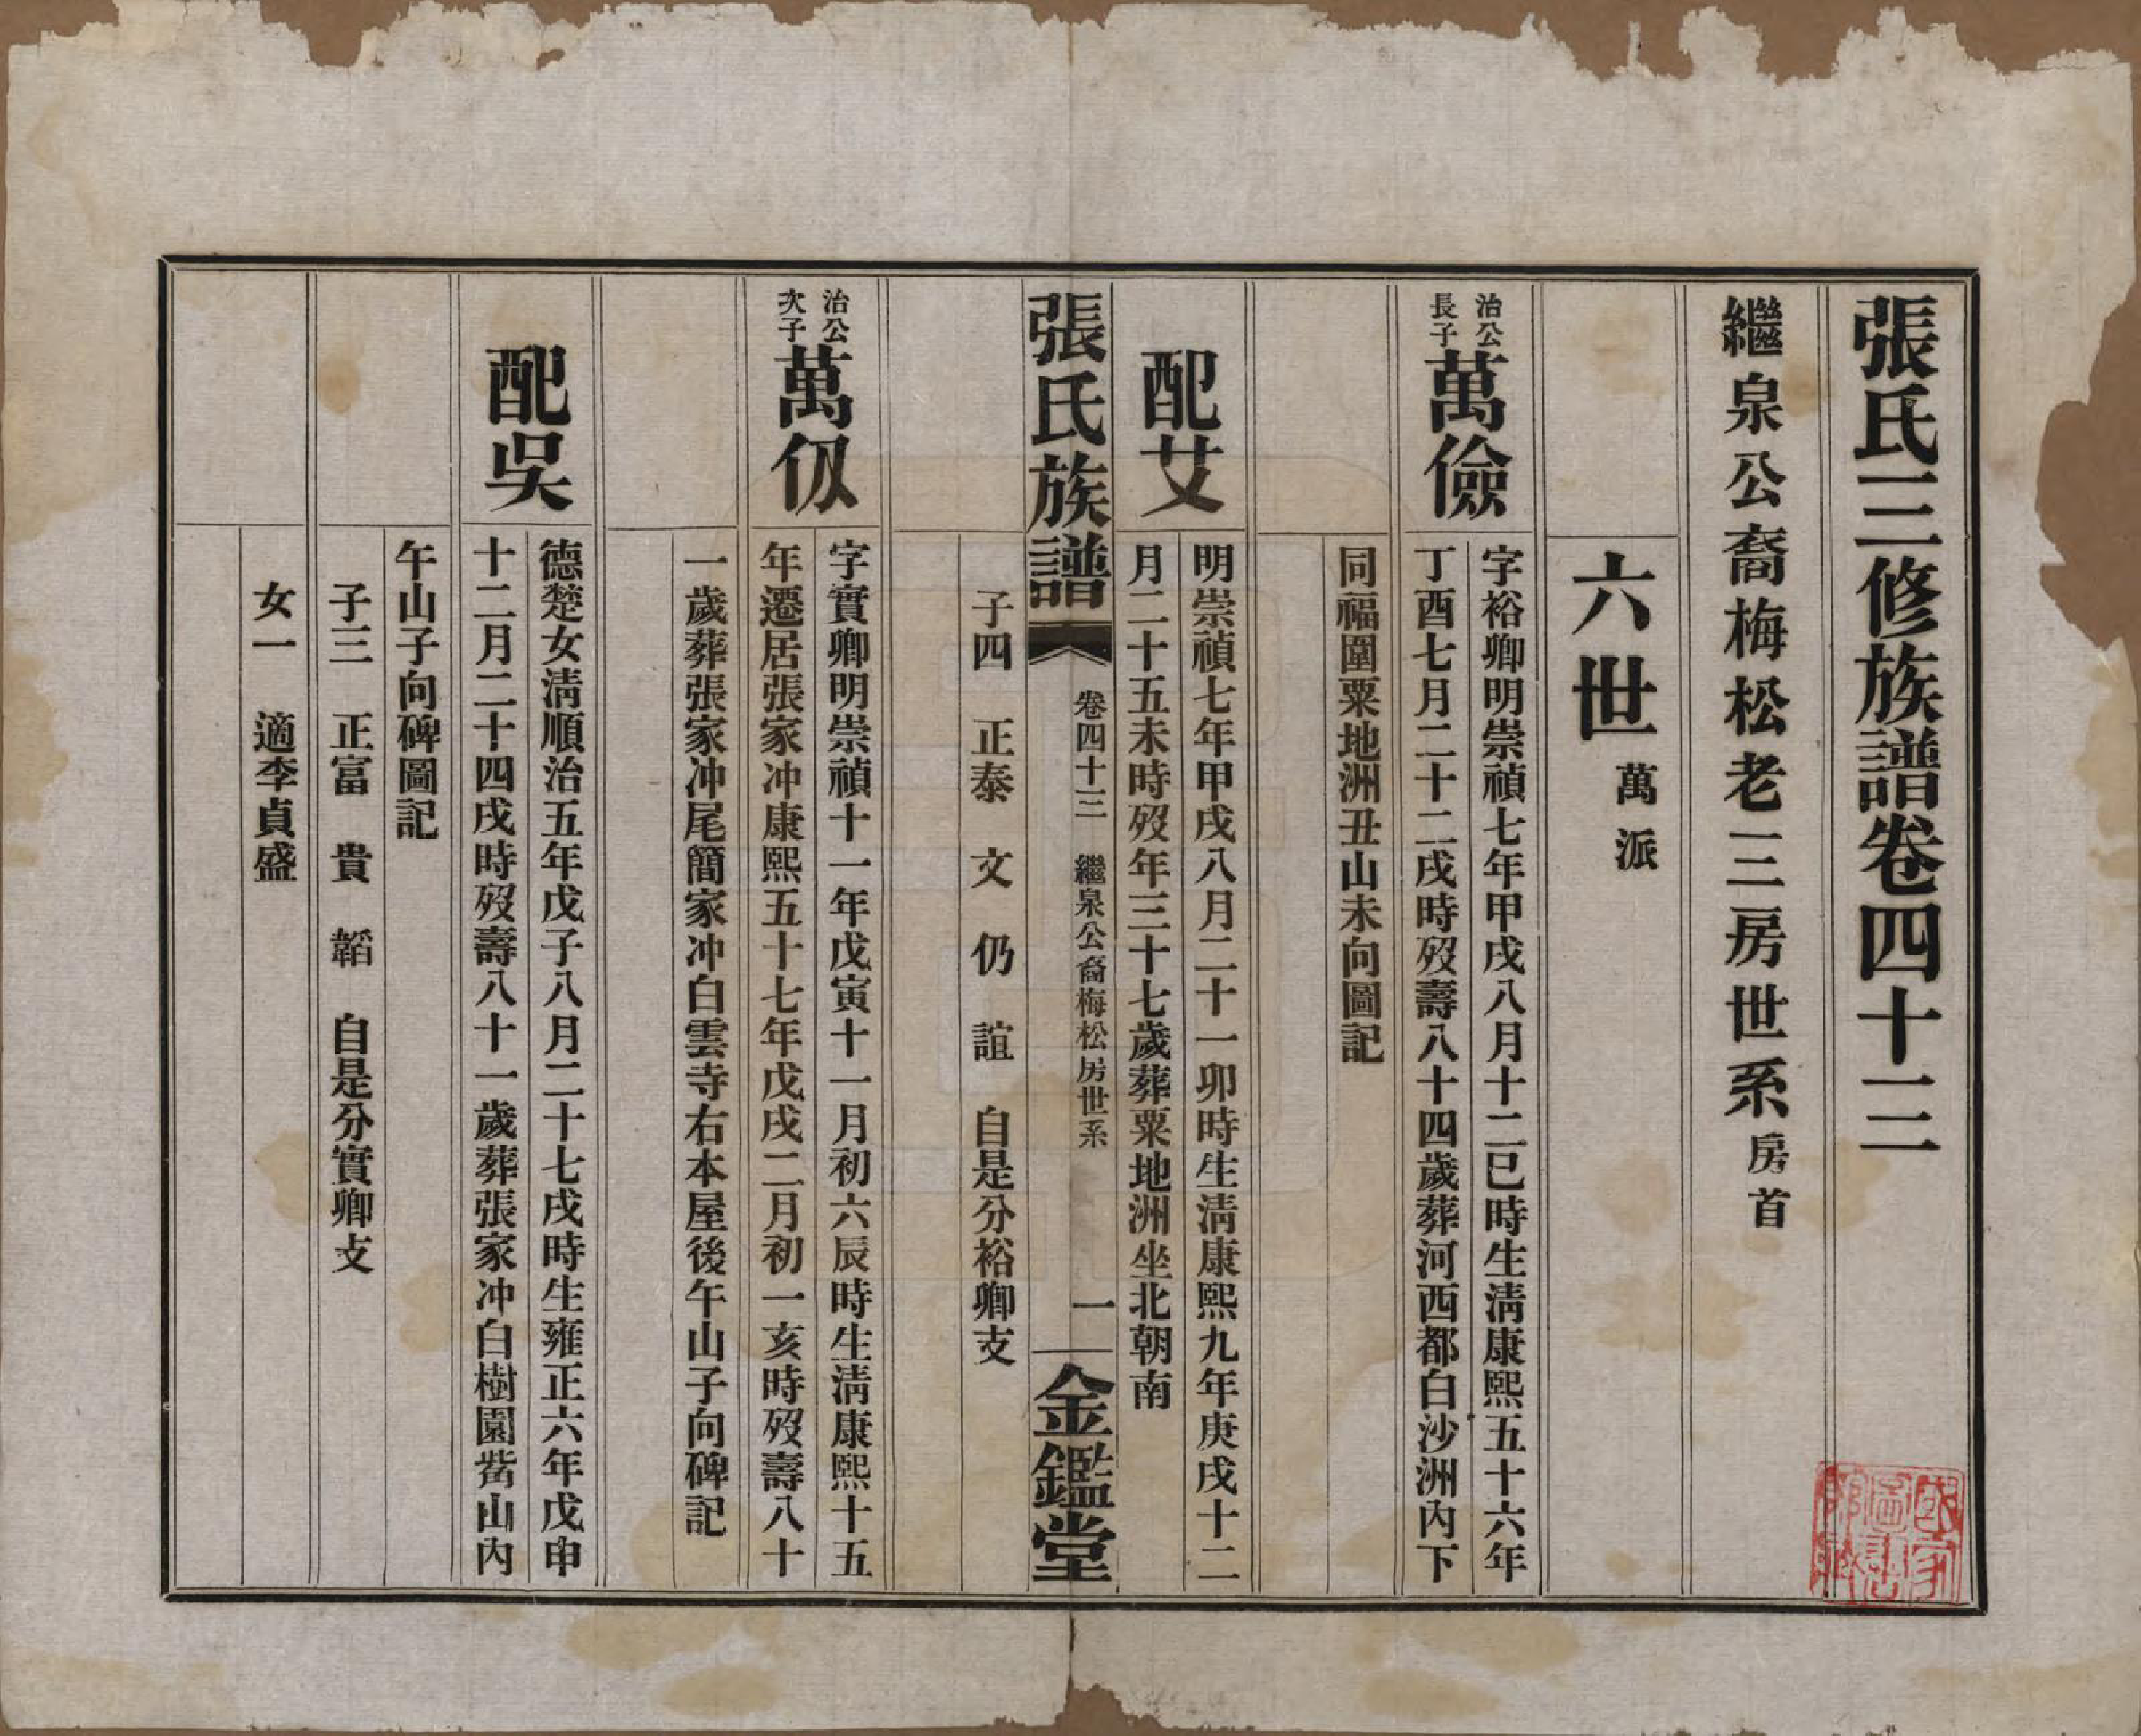 張氏三修族譜卷四十三
繼泉公裔梅松老三房世系房首
六世萬派
治公
長子
萬儉
字裕卿明崇禎七年甲戌八月十二巳時生清康熙五十六年
丁酉七月二十二戌時歿壽八十四歲葬河西都白沙洲內下
同福圍粟地洲丑山未向圖記
配艾
明崇禎七年甲戌八月二十一卯時生清康熙九年庚戌十二
月二十五未時歿年三十七歲葬粟地洲坐北朝南
子四 正泰 文 仍 誼 自是分裕卿支
張氏族譜
卷四十三 繼泉公裔梅松房世系
一
金鑑堂
治公
次子
萬仭
字實卿明崇禎十一年戊寅十一月初六辰時生清康熙十五
年遷居張家冲康熙五十七年戊戌二月初一亥時歿壽八十
一歲葬張家冲尾簡家冲白雲寺右本屋後午山子向碑記
配吳
德楚女清順治五年戊子八月二十七戌時生雍正六年戊申
十二月二十四戌時歿壽八十一歲葬張家冲白樹園觜山內
午山子向碑圖記
子三 正富 貴 韜 自是分實卿支
女一 適李貞盛